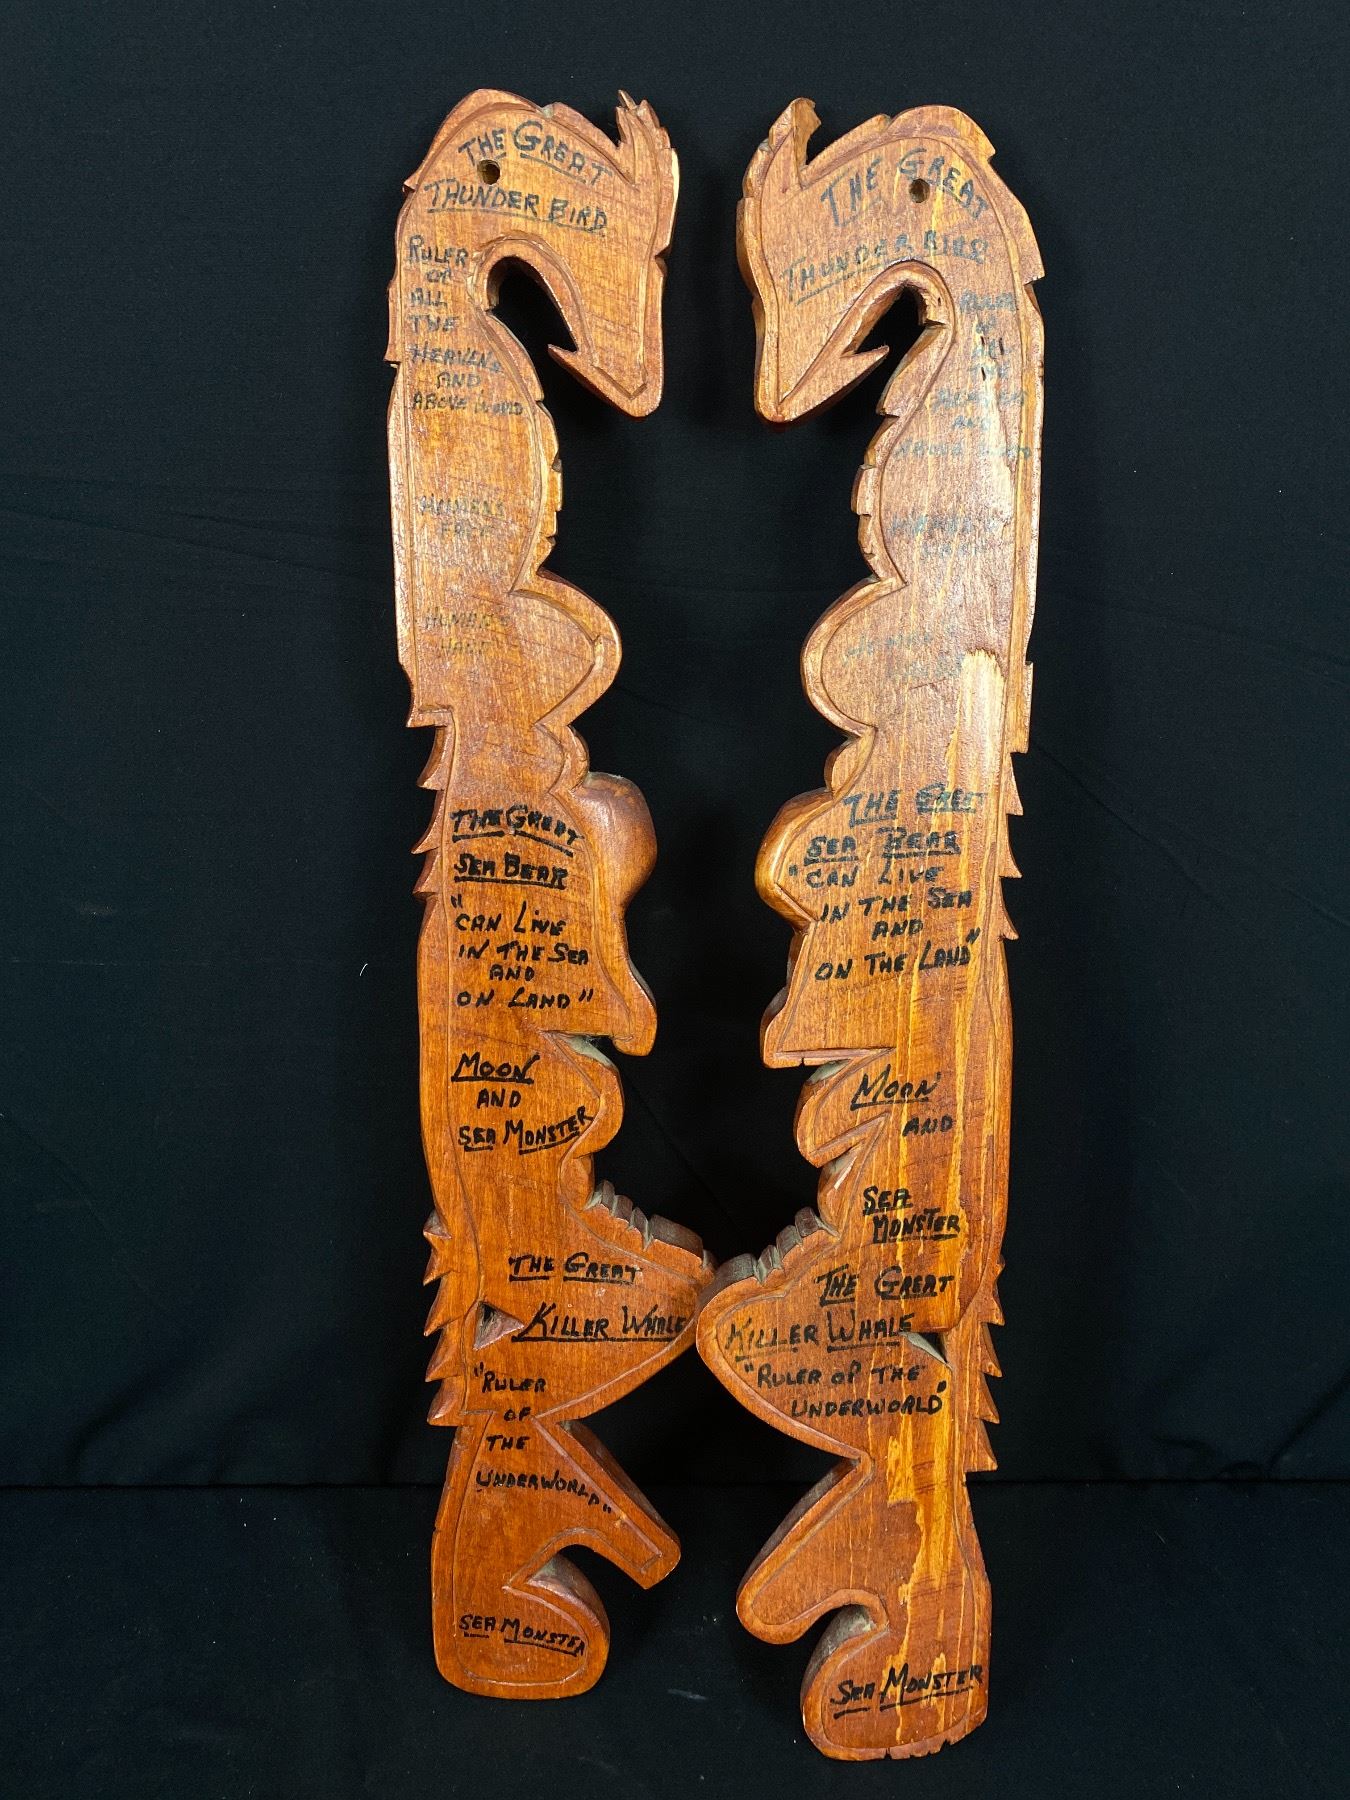 THE GREAT
THUNDER BIRD
RULER
OF
ALL
THE
HEAVENS
AND
ABOVE WORLD
HUMENS
FACE
HUMENS
THE GREAT
SEA BEAR
"CAN LIVE
IN THE SEA
AND
ON LAND"
MOON
AND
SEA MONSTER
THE GREAT
KILLER WHALE
"RULER
OF
THE
UNDERWORLD"
SEA MONSTER
THE GREAT
THUNDER BIRD
RULER
OF
ALL
THE
HEAVENS
AND
ABOVE WORLD
THE GREET
SEA BEAR
"CAN LIVE
IN THE SEA
AND
ON THE LAND"
MOON
AND
SEA
MONSTER
THE GREAT
KILLER WHALE
"RULER OF THE
UNDERWORLD"
SEA MONSTER